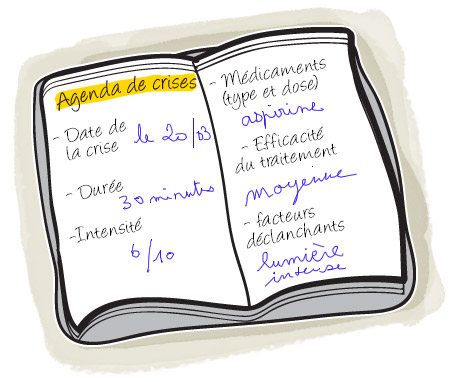 Agenda de crises
- Date de
la crise le 20/03
- Durée
30 minutes
-Intensité
6/10
- Médicaments
(type et dose)
aspirine
- Efficacité
du traitement
moyenne
- facteurs
déclanchants
lumière
intense